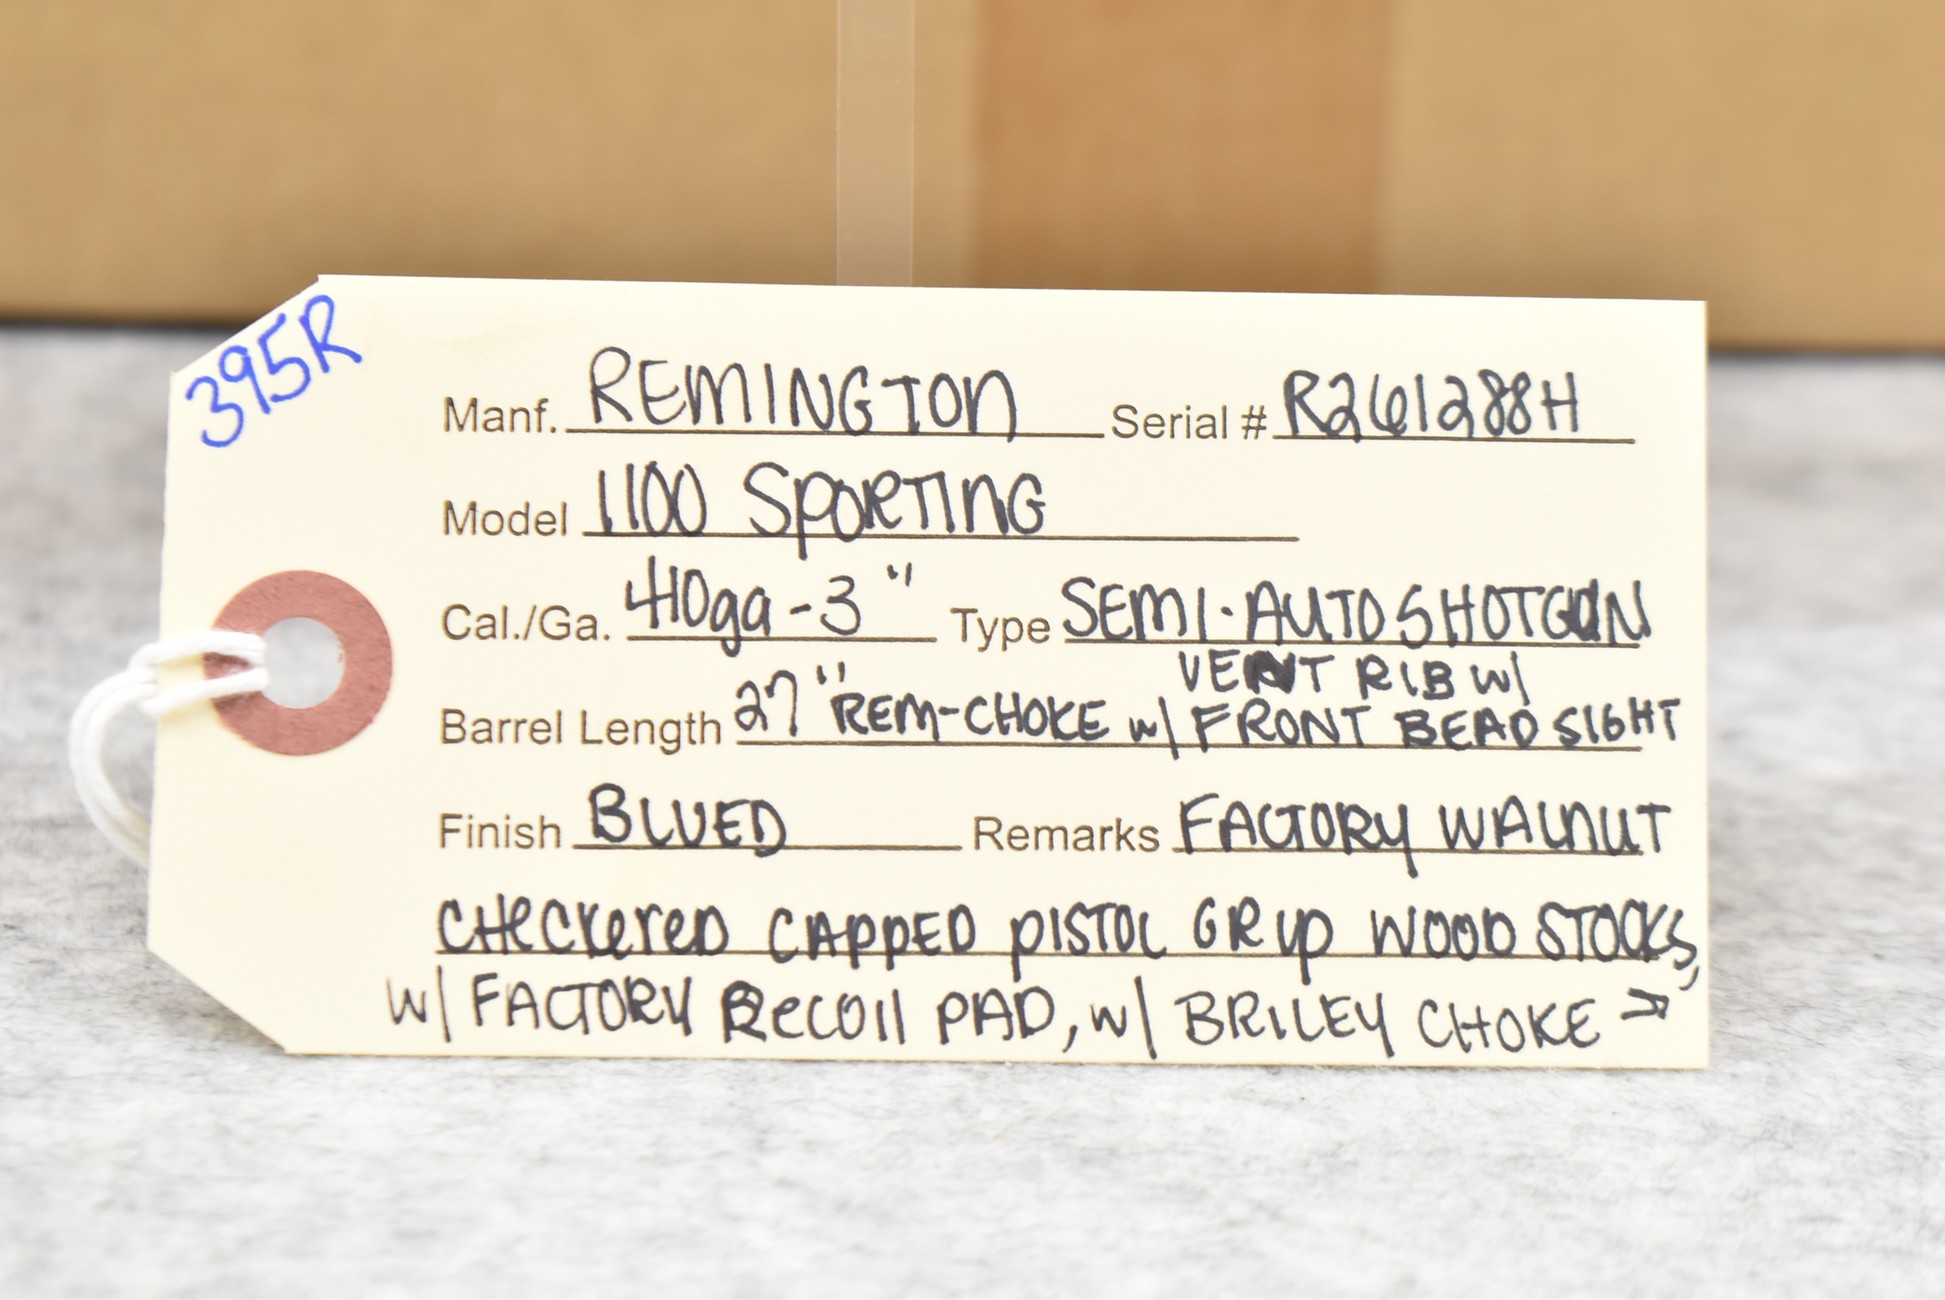 395R
Manf. REMINGTON Serial # R261288H
Model 1100 SPORTING
Cal./Ga. 410ga-3" Type SEMI-AUTO SHOTGUN
VENT RIB W/
Barrel Length 27" REM-CHOKE w/ FRONT BEAD SIGHT
Finish BLUED Remarks FACTORY WALNUT
CHECKERED CAPPED PISTOL GRIP WOOD STOCKS,
W/ FACTORY RECOIL PAD, W/ BRILEY CHOKE →